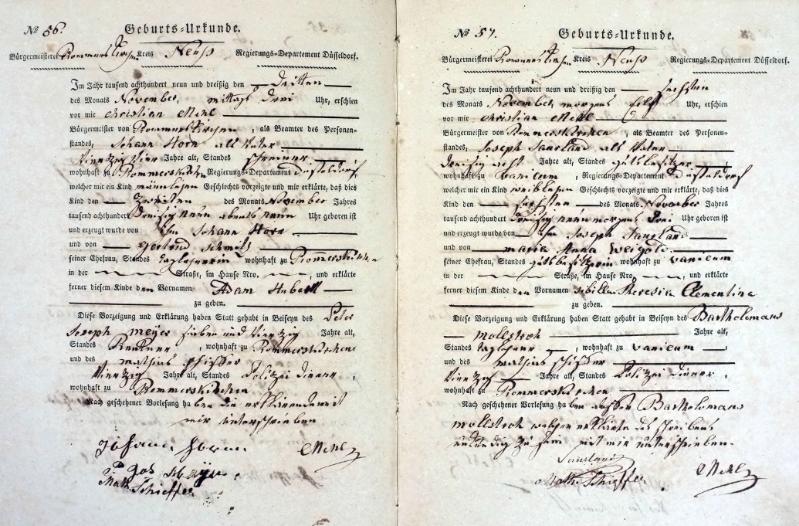 No 56.
Geburts-Urkunde.
Bürgermeisterei Rommerskirchen Kreis Neuß Regierungs-Departement Düsseldorf.
Im Jahr tausend achthundert neun und dreißig den dritten
des Monats November, mittags drei Uhr, erschien
vor mir Christian Mehl
Bürgermeister von Rommerskirchen, als Beamter des Personen-
standes, Johann Horn als Vater
vierzig Jahre alt, Standes
wohnhaft zu Rommerskirchen Regierungs-Departement Düsseldorf
welcher mir ein Kind männlichen Geschlechts vorzeigte und mir erklärte, daß dies
Kind den zweiten des Monats November Jahres
tausend achthundert dreißig neun abends neun Uhr geboren ist
und erzeugt wurde von ihm Johann Horn
und von Gertrud Schmitz
seiner Ehefrau, Standes Taglöhnerin wohnhaft zu Rommerskirchen
in der Straße, im Hause Nro. und erklärte
ferner diesem Kinde den Vornamen Adam Hubert
zu geben.
Diese Vorzeigung und Erklärung haben Statt gehabt in Beiseyn des Peter
Joseph Meijer sieben und vierzig Jahre alt,
Standes Rentner, wohnhaft zu Rommerskirchen
und des Mathias Schiffer
vierzig Jahre alt, Standes Polizei Diener,
wohnhaft zu Rommerskirchen
Nach geschehener Vorlesung haben die erklärenden mit
mir unterschrieben
Johann Horn
CMehl
P Jos Meijer
Math Schieffer
No 57.
Geburts-Urkunde.
Bürgermeisterei Rommerskirchen Kreis Neuß Regierungs-Departement Düsseldorf.
Im Jahr tausend achthundert neun und dreißig den sechsten
des Monats November, morgens eilf Uhr, erschien
vor mir Christian Mehl
Bürgermeister von Rommerskirchen, als Beamter des Personen-
standes, Joseph Saurland als Vater
dreißig acht Jahre alt, Standes Gutsbesitzer
wohnhaft zu Vanicum, Regierungs-Departement Düsseldorf
welcher mir ein Kind weiblichen Geschlechts vorzeigte und mir erklärte, daß dies
Kind den sechsten des Monats November Jahres
tausend achthundert dreißig neun morgens drei Uhr geboren ist
und erzeugt wurde von ihm Joseph Saurland
und von Maria Anna Weigold
seiner Ehefrau, Standes Gutsbesitzerin wohnhaft zu Vanicum
in der Straße, im Hause Nro. und erklärte
ferner diesem Kinde den Vornamen Sibilla Theresia Clementina
zu geben.
Diese Vorzeigung und Erklärung haben Statt gehabt in Beiseyn des Bartholomaus
Mollstroh Jahre alt,
Standes Taglöhner, wohnhaft zu Vanicum
und des Mathias Schiffer
vierzig Jahre alt, Standes Polizei Diener
wohnhaft zu Rommerskirchen
Nach geschehener Vorlesung haben dieselben Bartholomaus
Mollstroh welcher erklärte des schreibens
unkundig zu sein mit mir unterschrieben.
Saurland
Math. Schieffer
CMehl